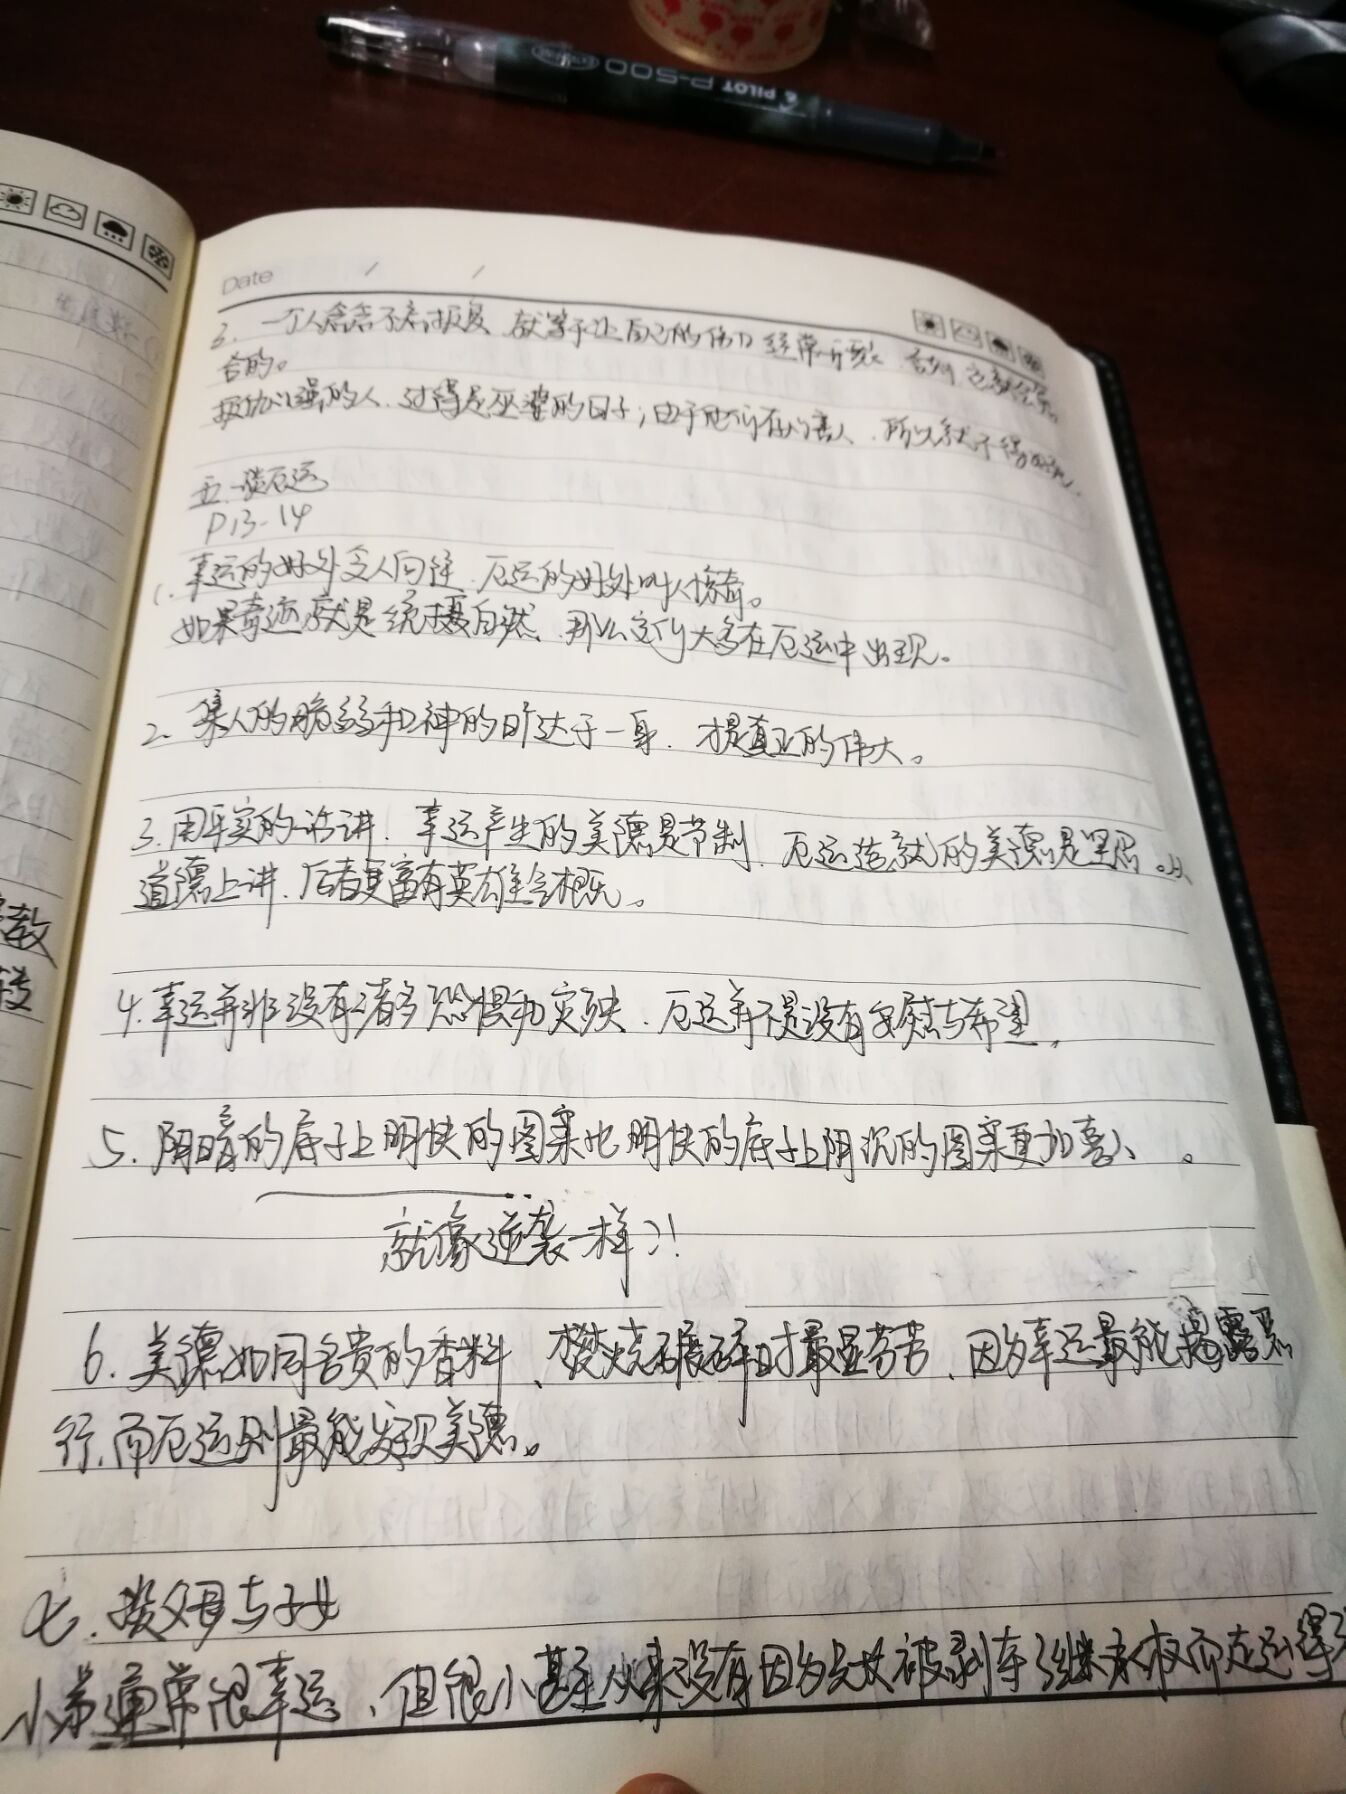 PILOT P-500
Date / /
3. 一个人念念不忘报复，就等于让自己的伤口经常开裂，否则它就会愈
合的。
报仇心强的人，过得是巫婆的日子；由于他们在世害人，所以就不得
五、谈厄运
P13-14
1. 幸运的好处令人向往，厄运的好处叫人惊奇。
如果奇迹就是统摄自然，那么它们大多在厄运中出现。
2. 集人的脆弱和神的旷达于一身，才是真正的伟大。
3. 用平实的话讲，幸运产生的美德是节制，厄运造就的美德是坚忍。从
道德上讲，后者更富有英雄气概。
4. 幸运并非没有诸多恐惧和灾殃，厄运并不是没有安慰与希望。
5. 阴暗的底子上明快的图案比明快的底子上阴沉的图案更加喜人。
就像逆袭一样？！
6. 美德如同名贵的香料，焚烧碾碎时才最显芬芳，因为幸运最能揭露恶
行，而厄运则最能发现美德。
七、谈父母与子女
小弟通常很幸运，但很小甚至从来没有因为兄长被剥夺继承权而走运得